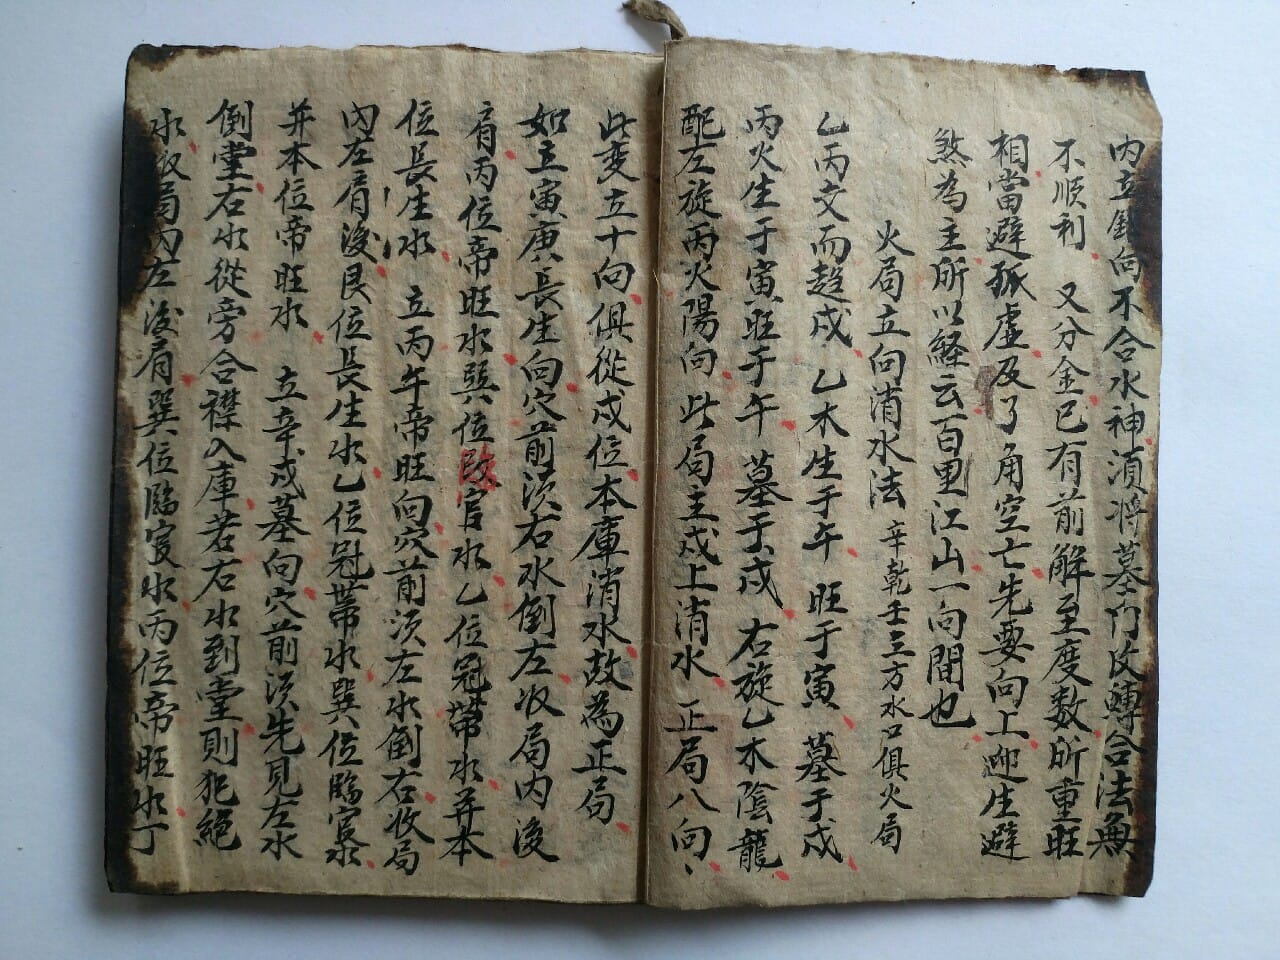 内立向不合水神須将墓門改轉合法無
不順利 又分金已有前解至度数所重旺
相當避孤虛及了角空亡先要向上迎生避
煞為主所以経云百里江山一向間也
火局立向消水法 辛乾壬三方水口俱火局
乙丙交而趋戍 乙木生于午 旺于寅 墓于戍
丙火生于寅旺于午 墓于戍 右旋乙木陰龍
配左旋丙火陽向 此局主戍上消水 正局八向
此变立十向俱從戍位本庫消水故為正局
如立寅庚長生向穴前須右水倒左收局内後
肩丙位帝旺水巽位臨官水乙位冠帶水并本
位長生水 立丙午帝旺向穴前須左水倒右收局
内左肩後艮位長生水乙位冠帶水巽位臨官水
并本位帝旺水 立辛戍墓向穴前須先見左水
倒堂右水從旁合襟入庫若右水到堂則犯絕
水收局内左後肩巽位臨官水丙位帝旺水丁